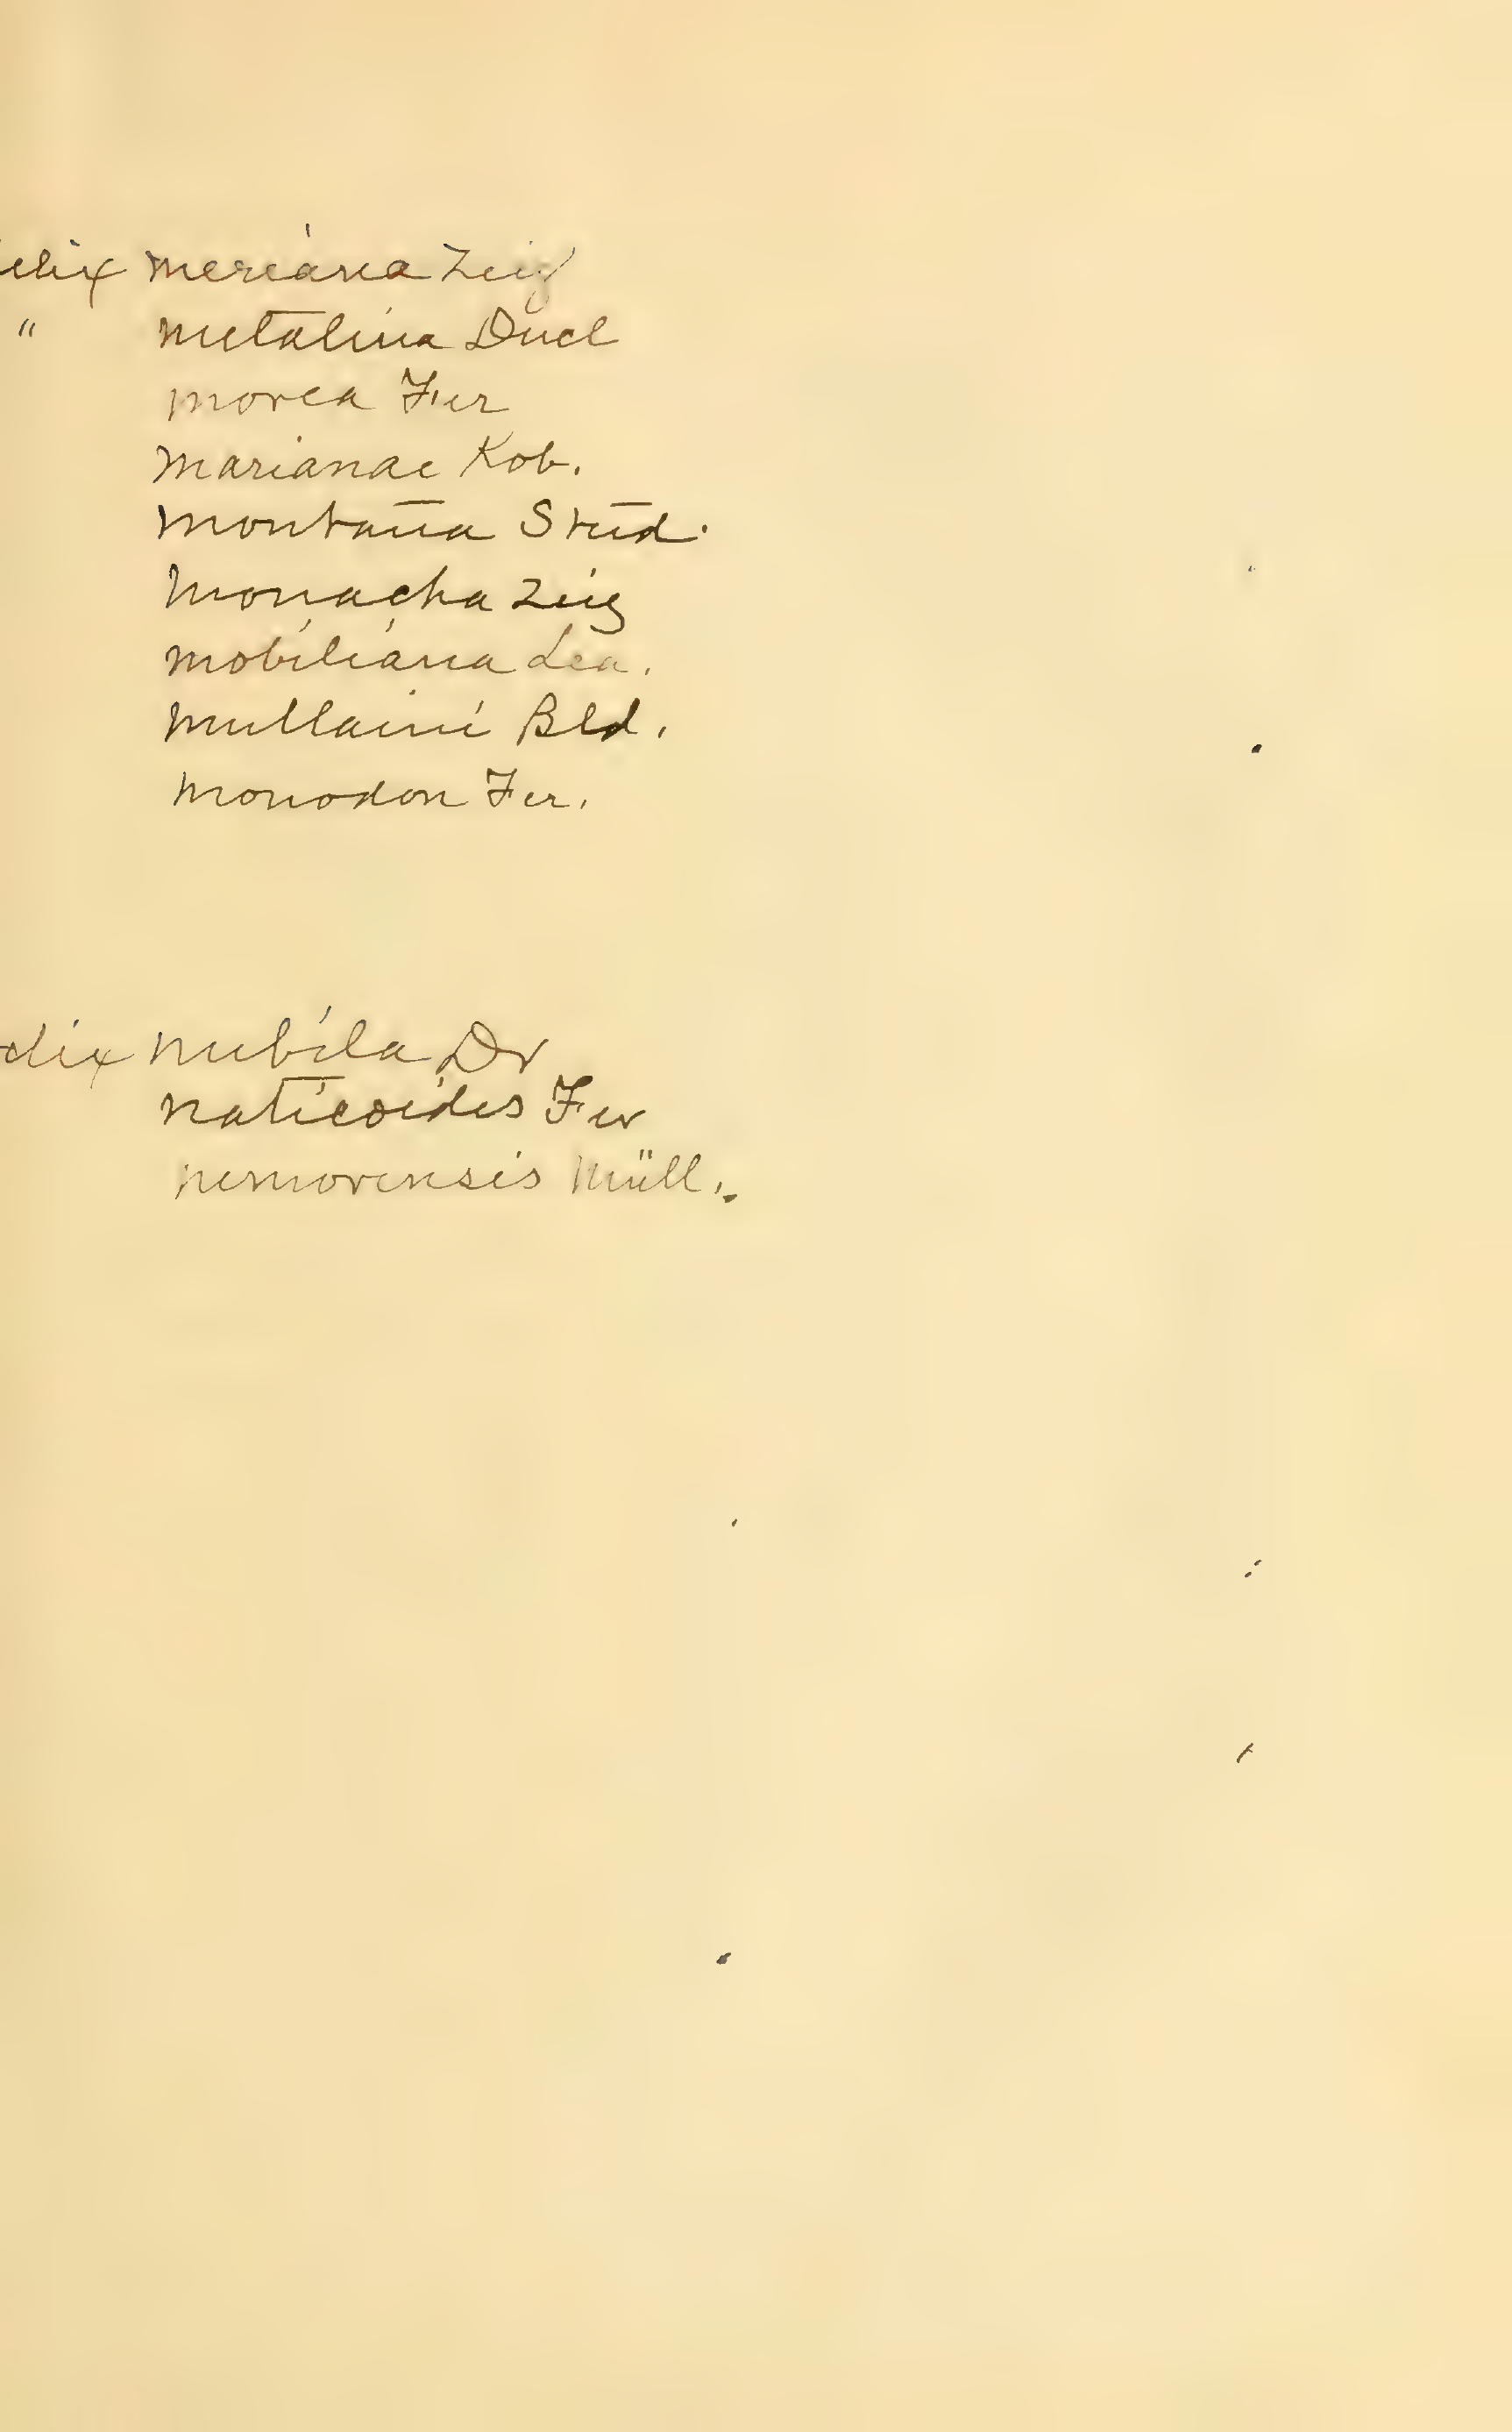 elix meriana Zeig
" metalina Ducl
morea Fer
marianae Kob.
montana Stud.
monacha Zeig
mobiliana Lea.
mullaini Bld.
monodon Fer.
elix nubila Dr
naticoides Fer
nemorensis Müll.